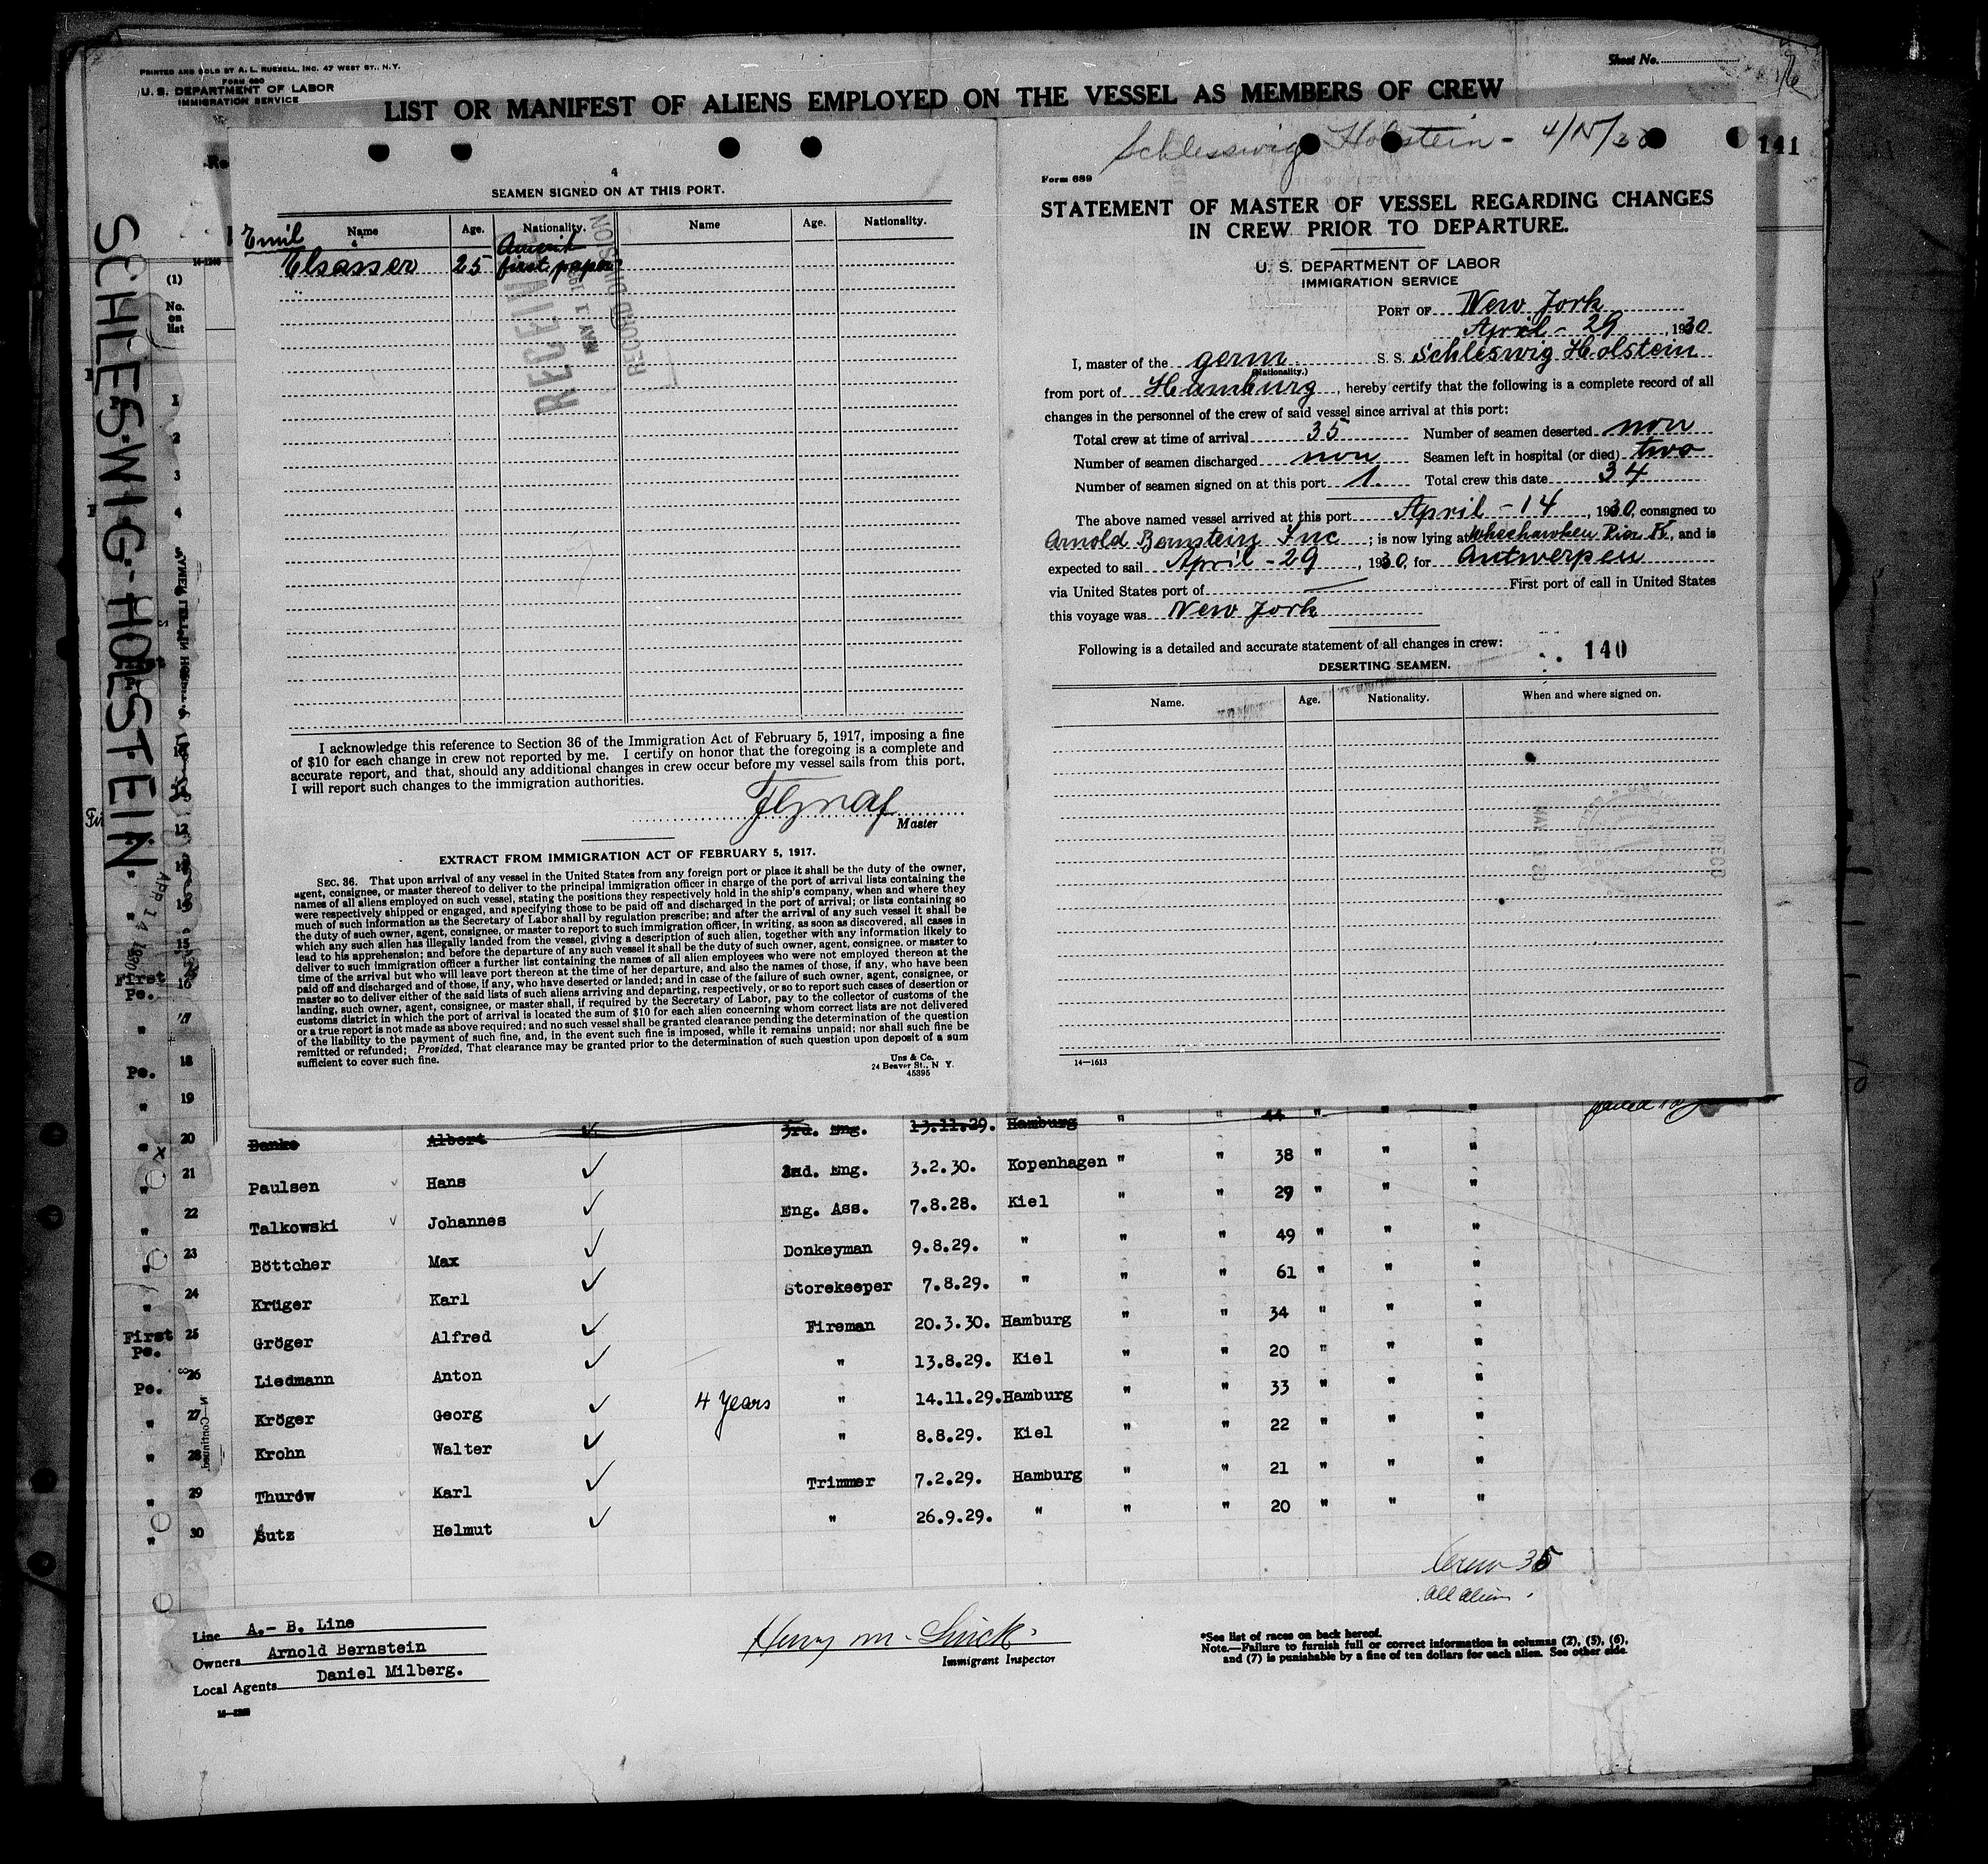 PRINTED AND SOLD BY A. L. RUSSELL, INC. 47 WEST ST., N. Y.
FORM 680
U. S. DEPARTMENT OF LABOR
IMMIGRATION SERVICE
Sheet No.
LIST OR MANIFEST OF ALIENS EMPLOYED ON THE VESSEL AS MEMBERS OF CREW
141
SCHLESWIG-HOLSTEIN
APR 14 1930
4
SEAMEN SIGNED ON AT THIS PORT.
Name Age. Nationality. Name Age. Nationality.
Emil
Elsasser 25 first paper
RECEIVED
MAY 1
RECORD DIVISION
I acknowledge this reference to Section 36 of the Immigration Act of February 5, 1917, imposing a fine
of $10 for each change in crew not reported by me. I certify on honor that the foregoing is a complete and
accurate report, and that, should any additional changes in crew occur before my vessel sails from this port,
I will report such changes to the immigration authorities.
Master
EXTRACT FROM IMMIGRATION ACT OF FEBRUARY 5, 1917.
SEC. 36. That upon arrival of any vessel in the United States from any foreign port or place it shall be the duty of the owner,
agent, consignee, or master thereof to deliver to the principal immigration officer in charge of the port of arrival lists containing the
names of all aliens employed on such vessel, stating the positions they respectively hold in the ship's company, when and where they
were respectively shipped or engaged, and specifying those to be paid off and discharged in the port of arrival; or lists containing so
much of such information as the Secretary of Labor shall by regulation prescribe; and after the arrival of any such vessel it shall be
the duty of such owner, agent, consignee, or master to report to such immigration officer, in writing, as soon as discovered, all cases in
which any such alien has illegally landed from the vessel, giving a description of such alien, together with any information likely to
lead to his apprehension; and before the departure of any such vessel it shall be the duty of such owner, agent, consignee. or master to
deliver to such immigration officer a further list containing the names of all alien employees who were not employed thereon at the
time of the arrival but who will leave port thereon at the time of her departure, and also the names of those, if any, who have been
paid off and discharged and of those, if any, who have deserted or landed; and in case of the failure of such owner, agent, consignee, or
master so to deliver either of the said lists of such aliens arriving and departing, respectively, or so to report such cases of desertion or
landing, such owner, agent, consignee, or master shall, if required by the Secretary of Labor, pay to the collector of customs of the
customs district in which the port of arrival is located the sum of $10 for each alien concerning whom correct lists are not delivered
or a true report is not made as above required; and no such vessel shall be granted clearance pending the determination of the question
of the liability to the payment of such fine, and, in the event such fine is imposed, while it remains unpaid; nor shall such fine be
remitted or refunded; Provided, That clearance may be granted prior to the determination of such question upon deposit of a sum
sufficient to cover such fine.
Uns & Co.
24 Beaver St., N Y.
45395
Schlesswig Holstein - 4/15/30
Form 689
STATEMENT OF MASTER OF VESSEL REGARDING CHANGES
IN CREW PRIOR TO DEPARTURE.
U. S. DEPARTMENT OF LABOR
IMMIGRATION SERVICE
PORT OF New York
April - 29, 1930
I, master of the germ S. S. Schleswig Holstein
(Nationality.)
from port of Hamburg, hereby certify that the following is a complete record of all
changes in the personnel of the crew of said vessel since arrival at this port:
Total crew at time of arrival 35 Number of seamen deserted non
Number of seamen discharged non Seamen left in hospital (or died) two
Number of seamen signed on at this port 1. Total crew this date 34
The above named vessel arrived at this port April - 14, 1930, consigned to
Arnold Bernstein Inc; is now lying at Wheehawken Pier K, and is
expected to sail April - 29, 1930, for Antwerpen
via United States port of First port of call in United States
this voyage was New York
Following is a detailed and accurate statement of all changes in crew: 140
DESERTING SEAMEN.
Name. Age. Nationality. When and where signed on.
14—1613
(1)
No.
on
list
1
2
3
4
12
15
First 16
Pe.
" 17
Pe. 18
" 19
" 20 Banke Albert 3rd. Eng. 13.11.29. Hamburg " " 44 " " "
" 21 Paulsen Hans 2nd. Eng. 3.2.30. Kopenhagen " " 38 " " "
" 22 Talkowski Johannes Eng. Ass. 7.8.28. Kiel " " 29 " " "
" 23 Böttcher Max Donkeyman 9.8.29. " " " 49 " " "
" 24 Krüger Karl Storekeeper 7.8.29. " " " 61 " " "
First Pe. 25 Gröger Alfred Fireman 20.3.30. Hamburg " " 34 " " "
Pe. 26 Liedmann Anton " 13.8.29. Kiel " " 20 " " "
" 27 Kröger Georg 4 years " 14.11.29. Hamburg " " 33 " " "
" 28 Krohn Walter " 8.8.29. Kiel " " 22 " " "
" 29 Thurow Karl Trimmer 7.2.29. Hamburg " " 21 " " "
" 30 Sutz Helmut " 26.9.29. " " " 20 " " "
Crew 35
all alien
Line A.- B. Line
Owners Arnold Bernstein
Local Agents Daniel Milberg.
Immigrant Inspector
*See list of races on back hereof.
Note.—Failure to furnish full or correct information in columns (2), (5), (6),
and (7) is punishable by a fine of ten dollars for each alien. See other side.